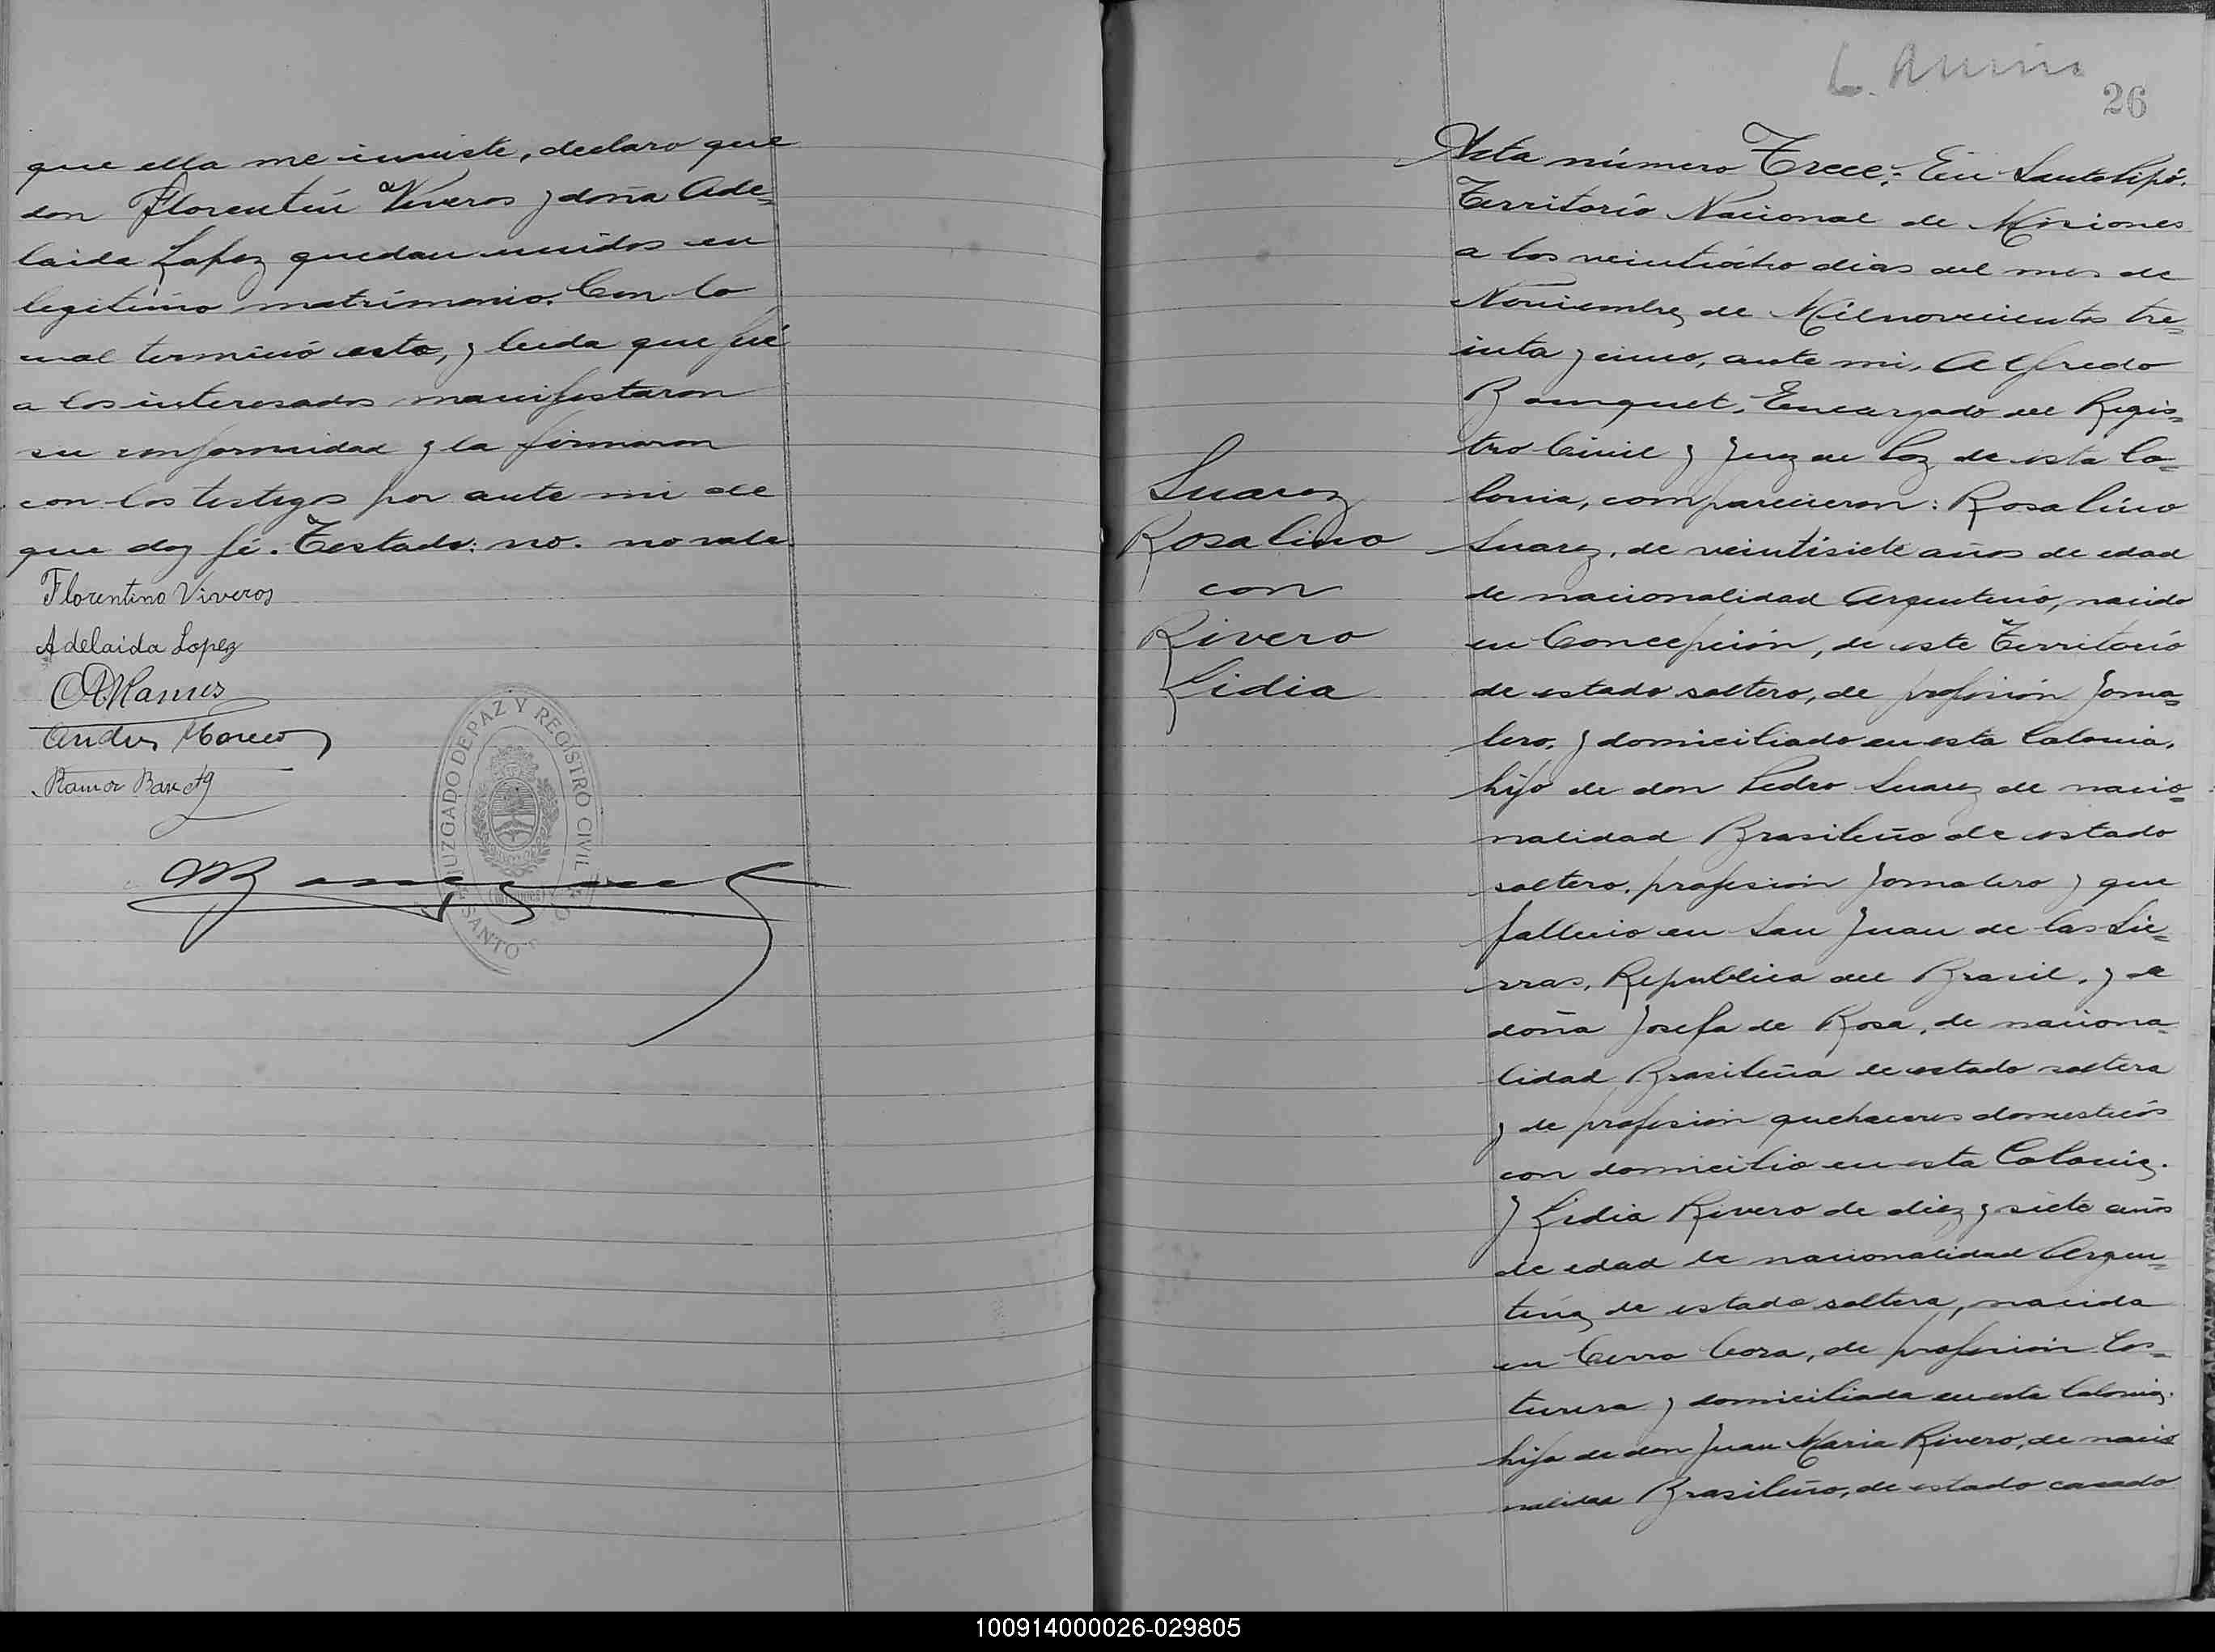 que ella me inviste, declaro que
don Florentin Viveros y doña Ade=
laida Lopez quedan unidos en
legitimo matrimonio. Con lo
cual terminó esta, y leida que fué
a los interesados manifestaron
su conformidad y la firmaron
con los testigos por ante mi de
que doy fé. Testado: no. no vale.
Florentino Viveros
Adelaida Lopez
Andres
Ramon
JUZGADO DE PAZ Y REGISTRO CIVIL
SANTO
(MISIONES)
26
Acta número Trece: En Santo Pipó.
Territorio Nacional de Misiones
a los veintiocho dias del mes de
Noviembre de Milnovecientos tre=
inta y cinco, ante mi, Alfredo
Encargado del Regis=
tro Civil y Juez de Paz de esta Co=
lonia, comparecieron: Rosalino
Suarez, de veintisiete años de edad
de nacionalidad Argentino, nacido
en Concepción, de este Territorio
de estado soltero, de profesión Jorna=
lero, y domiciliado en esta Colonia,
hijo de don Pedro Suarez de nacio=
nalidad Brasileño de estado
soltero, profesión Jornalero y que
fallecio en San Juan de las Sie=
rras, Republica del Brasil, y de
doña Josefa de Rosa, de naciona=
lidad Brasileña de estado soltera
y de profesión quehaceres domesticos
con domicilio en esta Colonia.
y Lidia Rivero de diez y siete años
de edad de nacionalidad Argen=
tina, de estado soltera, nacida
en Cerro Cora, de profesión Cos=
turera y domiciliada en esta Colonia,
hija de don Juan Maria Rivero, de nacio
nalidad Brasileño, de estado casado
Suarez
Rosalino
con
Rivero
Lidia
100914000026-029805